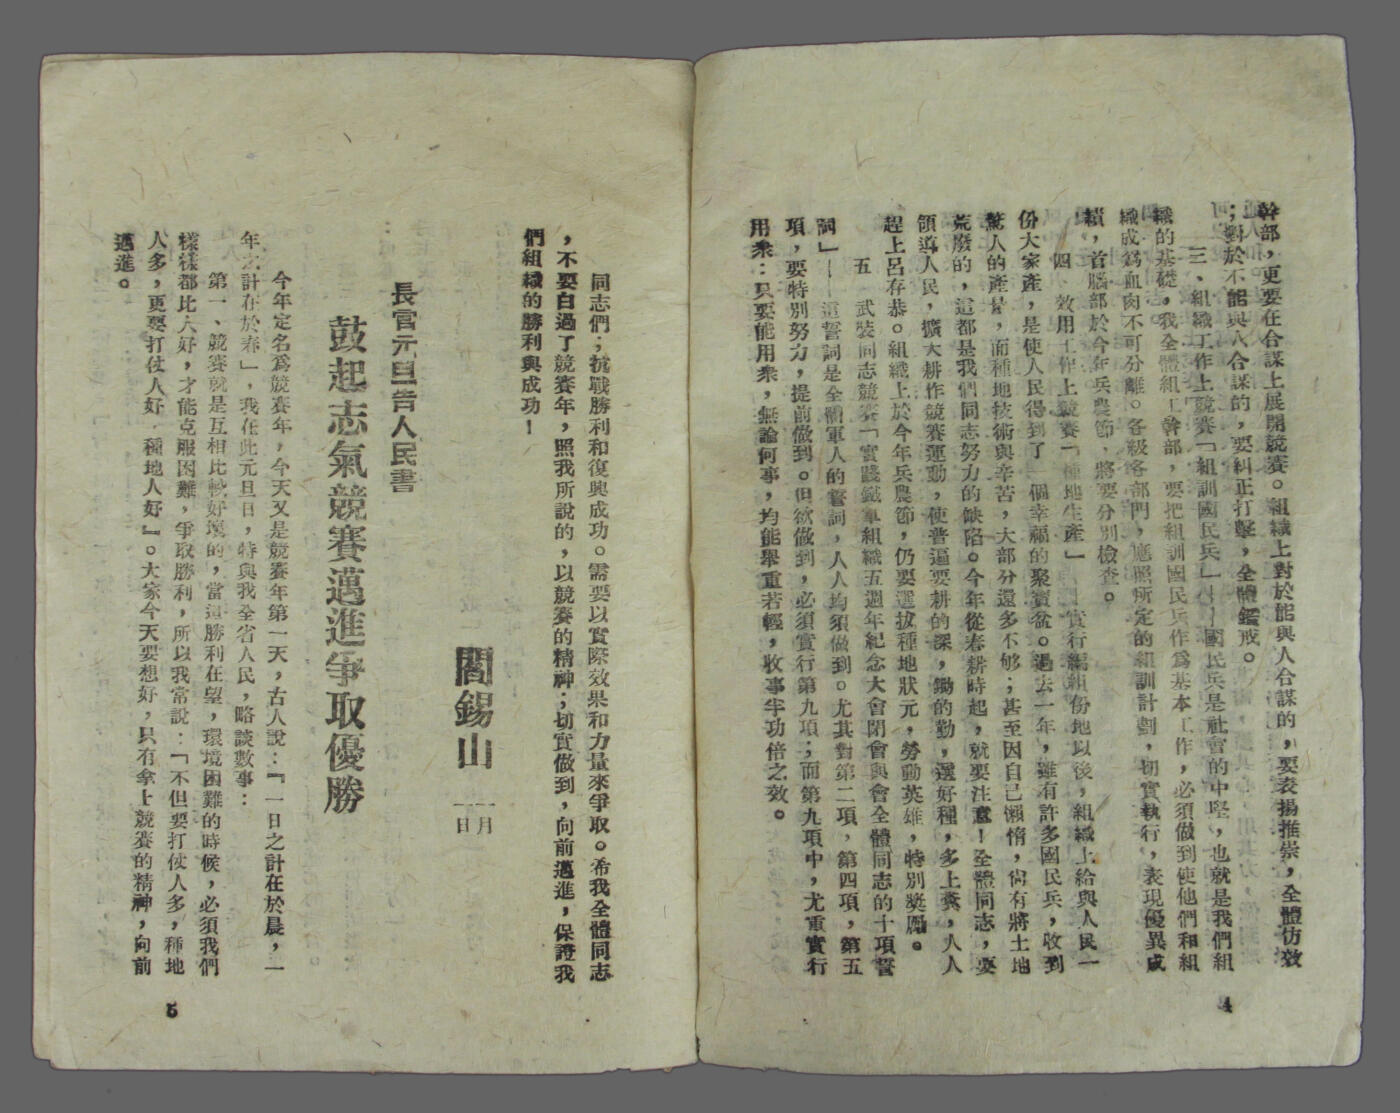 幹部，更要在合謀上展開競賽。組織上對於能與人合謀的，要表揚推崇，全體仿效
；對於不能與人合謀的，要糾正打擊，全體鑑戒。
三、組織工作上競賽「組訓國民兵」——國民兵是社會的中堅，也就是我們組
織的基礎，我全體組工幹部，要把組訓國民兵作爲基本工作，必須做到使他們和組
織成爲血肉不可分離。各級各部門，應照所定的組訓計劃，切實執行，表現優異成
績，首腦部於今年兵農節，將要分別檢查。
四、效用工作上競賽「種地生產」——實行編組份地以後，組織上給與人民一
份大家產，是使人民得到了一個幸福的聚寶盆。過去一年，雖有許多國民兵，收到
驚人的產量，而種地技術與辛苦，大部分還多不够；甚至因自己懶惰，尙有將土地
荒廢的，這都是我們同志努力的缺陷。今年從春耕時起，就要注意！全體同志，要
領導人民，擴大耕作競賽運動，使普遍要耕的深，鋤的勤，選好種，多上糞，人人
趕上呂存恭。組織上於今年兵農節，仍要選拔種地狀元，勞動英雄，特別獎勵。
五、武裝同志競賽「實踐鐵軍組織五週年紀念大會閉會與會全體同志的十項誓
詞」——這誓詞是全體軍人的誓詞，人人均須做到。尤其對第二項，第四項，第五
項，要特別努力，提前做到。但欲做到，必須實行第九項；而第九項中，尤重實行
用衆：只要能用衆，無論何事，均能舉重若輕，收事半功倍之效。
4
同志們；抗戰勝利和復興成功。需要以實際效果和力量來爭取。希我全體同志
，不要白過了競賽年，照我所說的，以競賽的精神；切實做到，向前邁進，保證我
們組織的勝利與成功！
閻錫山 一月一日
長官元旦告人民書
鼓起志氣競賽邁進爭取優勝
今年定名爲競賽年，今天又是競賽年第一天，古人說：『一日之計在於晨，一
年之計在於春』，我在此元旦日，特與我全省人民，略談數事：
第一、競賽就是互相比較好壞的，當這勝利在望，環境困難的時候，必須我們
樣樣都比人好，才能克服困難，爭取勝利，所以我常說：「不但要打仗人多，種地
人多，更要打仗人好，種地人好』。大家今天要想好，只有拿上競賽的精神，向前
邁進。
5